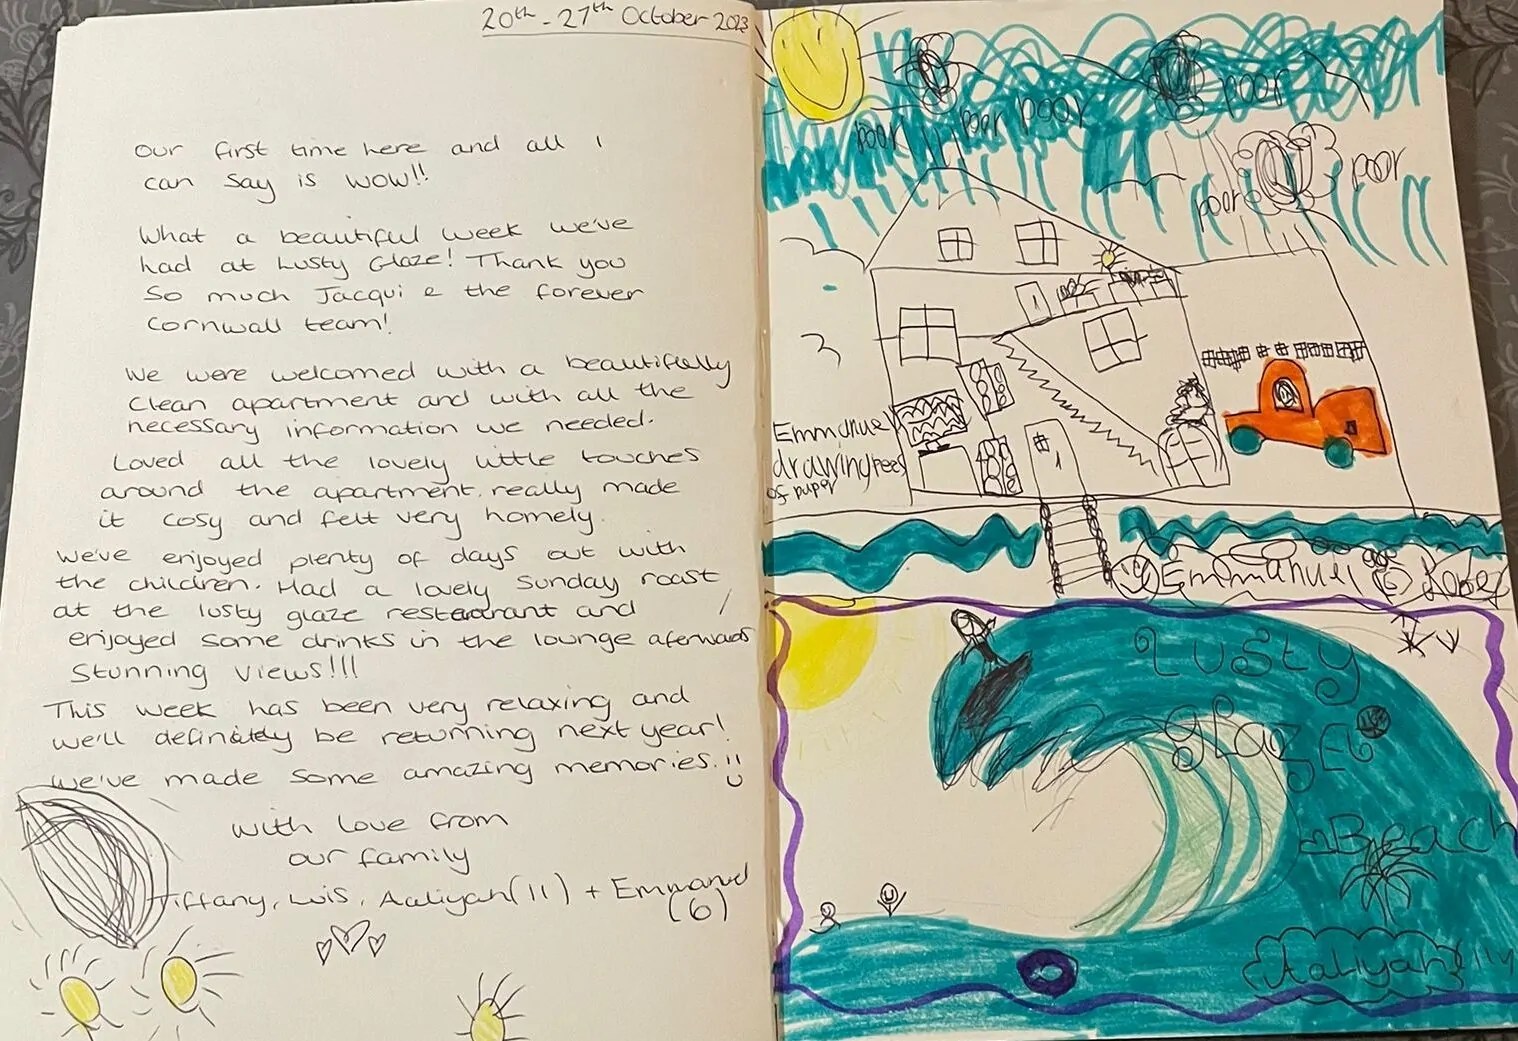 20th - 27th October 2023
Our first time here and all I
can say is WOW!!
What a beautiful week we've
had at Lusty Glaze! Thank you
so much Jacqui & the forever
Cornwall team!
We were welcomed with a beautifully
clean apartment and with all the
necessary information we needed.
Loved all the lovely little touches
around the apartment, really made
it cosy and felt very homely.
We've enjoyed plenty of days out with
the children. Had a lovely Sunday roast
at the lusty glaze restaurant and
enjoyed some drinks in the lounge aferwards
Stunning views!!!
This week has been very relaxing and
we'll definitely be returning next year!
We've made some amazing memories.
with love from
our family
Tiffany, Luis, Aaliyah (11) + Emmanuel
(6)
poor poor poor poor
poor poor
Emmanuel
drawing pees
of paper
Emmanuel
Lusty
Glaze
Beach
Aaliyah 11y